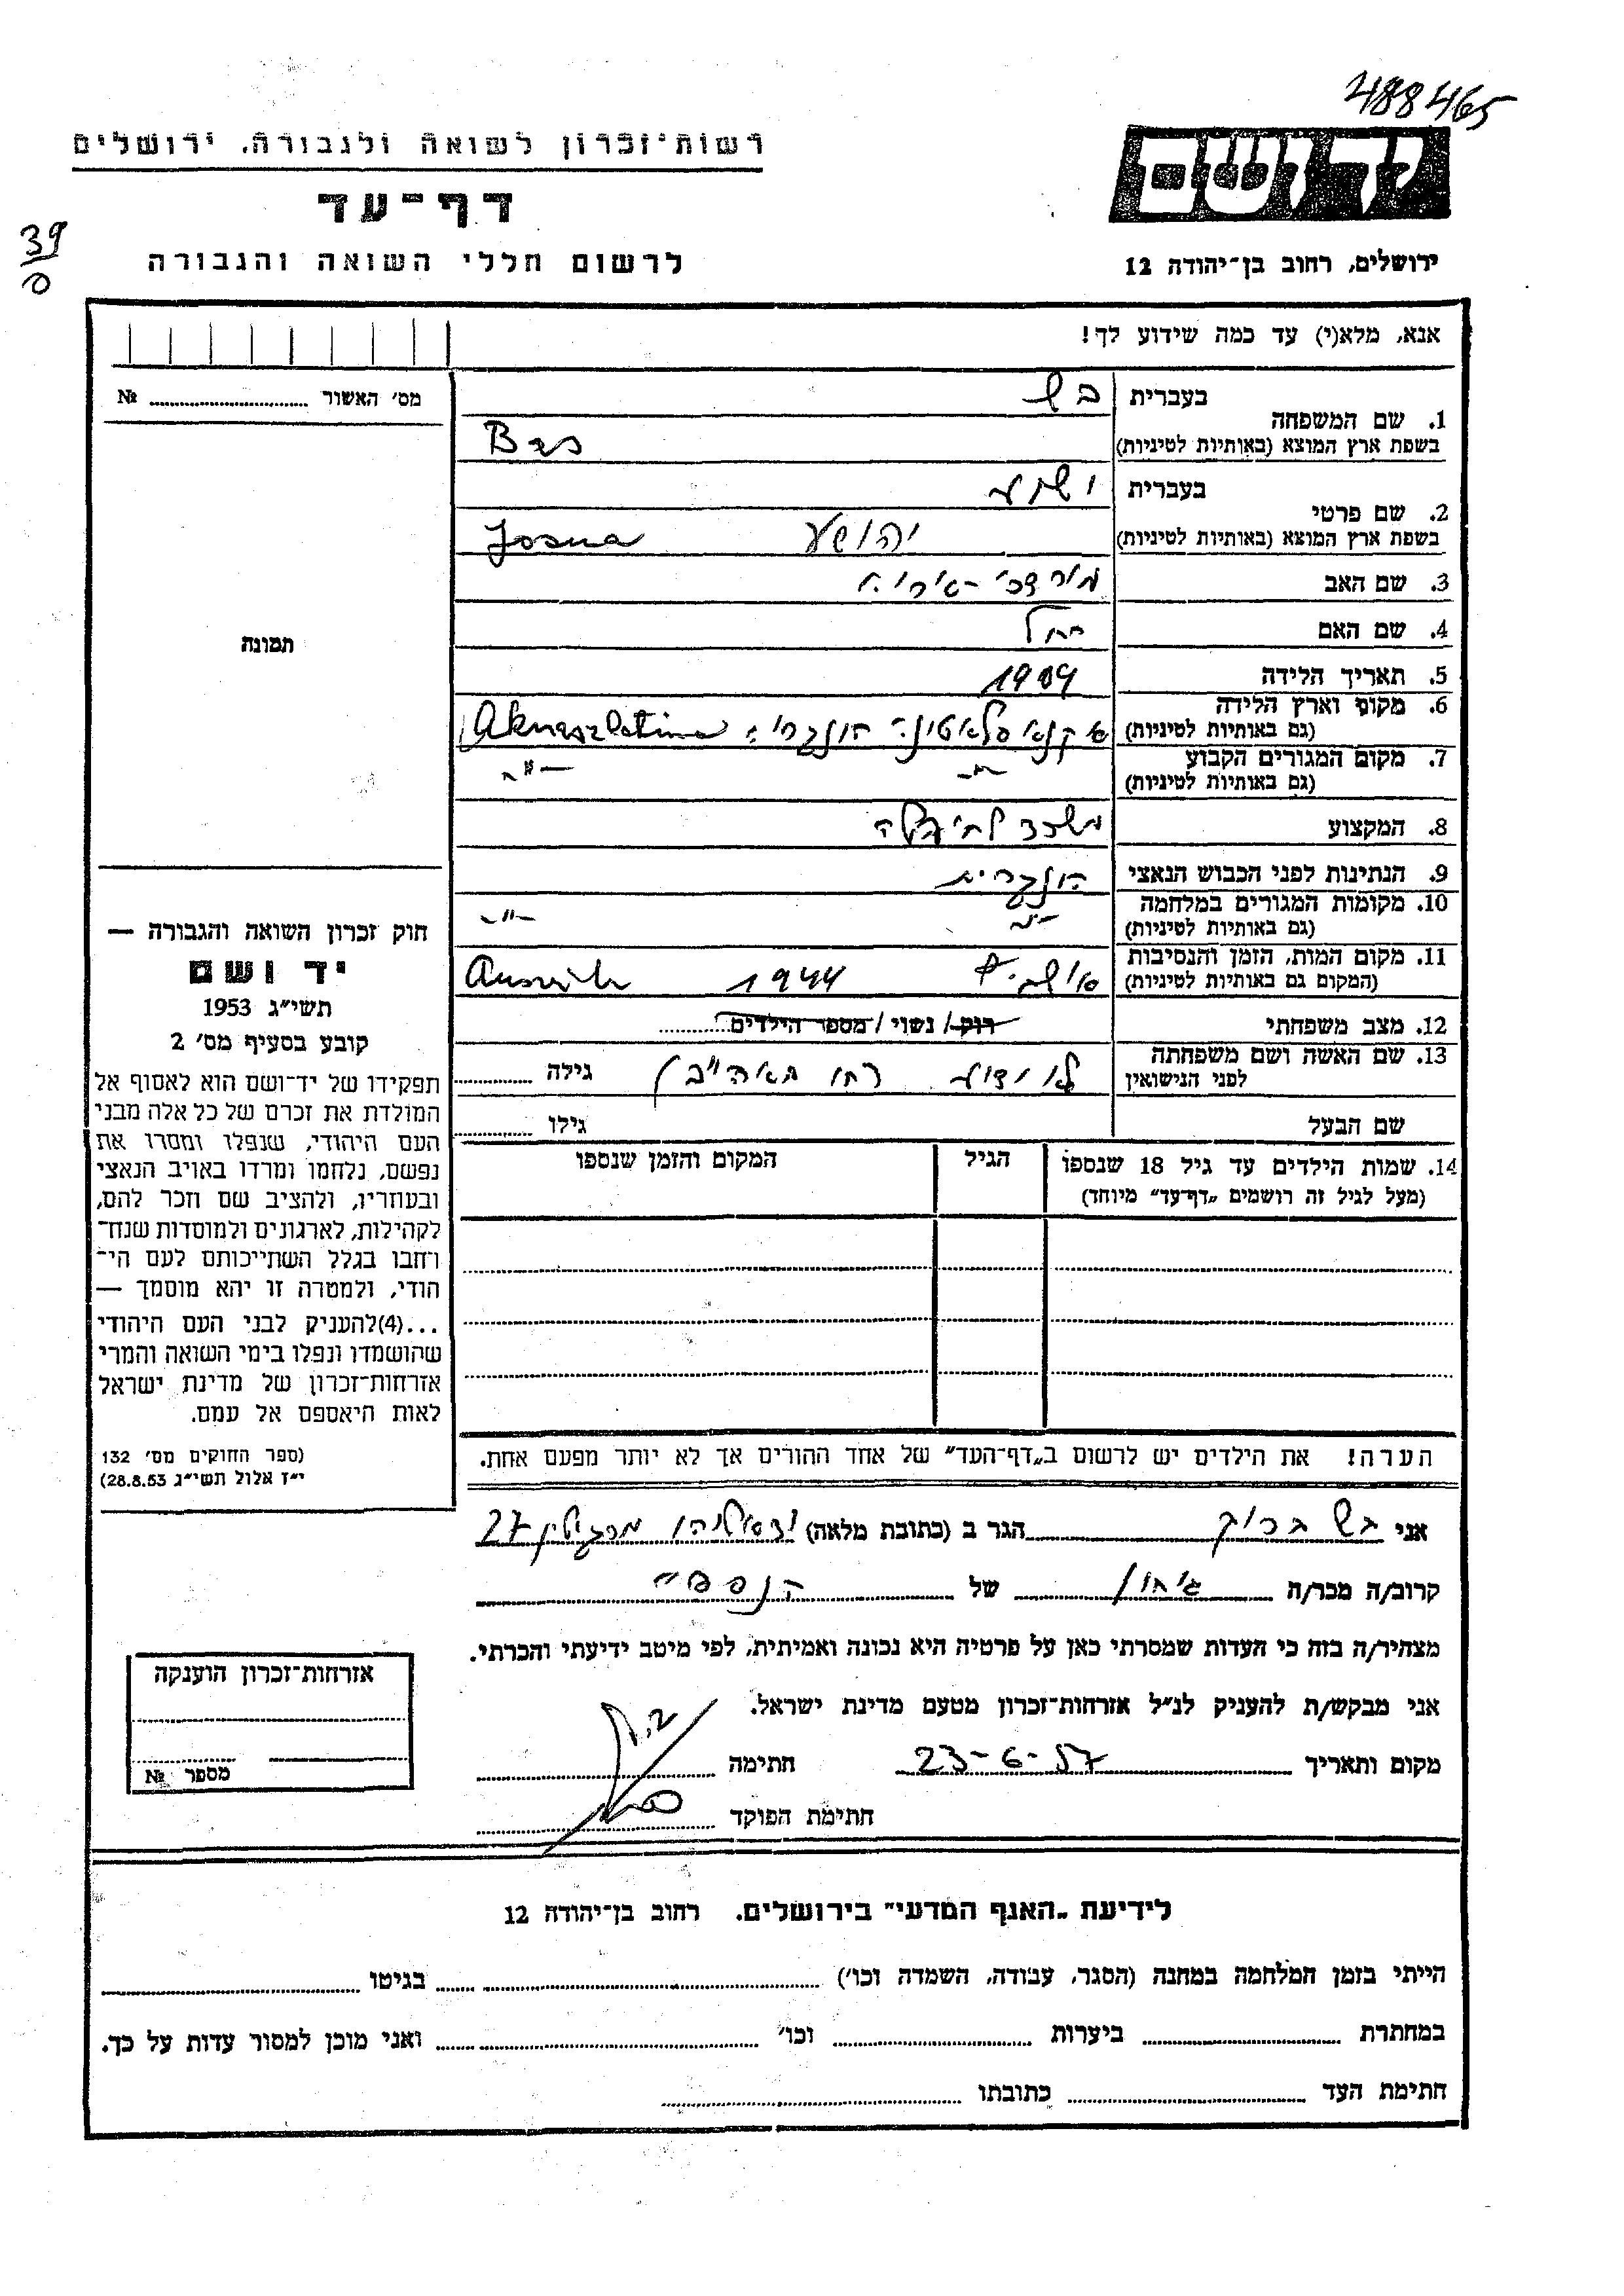 488465
רשות־זכרון לשואה ולגבורה, ירושלים
יד ושם
דף־עד
39
לרשום חללי השואה והגבורה
ירושלים, רחוב בן־יהודה 12
אנא, מלא(י) עד כמה שידוע לך!
מס׳ האשור № 
תמונה
1. שם המשפחה
בעברית בש
בשפת ארץ המוצא (באותיות לטיניות)
2. שם פרטי
בעברית
בשפת ארץ המוצא (באותיות לטיניות) יהושע Josua
3. שם האב מורדכי
4. שם האם רחל
5. תאריך הלידה 1904
6. מקום וארץ הלידה
(גם באותיות לטיניות) Aknaszlatina
7. מקום המגורים הקבוע —"—
(גם באותיות לטיניות)
8. המקצוע
9. הנתינות לפני הכבוש הנאצי הונגרית
10. מקומות המגורים במלחמה —"—
(גם באותיות לטיניות)
11. מקום המות, הזמן והנסיבות
(המקום גם באותיות לטיניות) 1944
12. מצב משפחתי רוק / נשוי / מספר הילדים
13. שם האשה ושם משפחתה
לפני הנישואין לא ידוע גילה
שם הבעל גילו
14. שמות הילדים עד גיל 18 שנספו הגיל המקום והזמן שנספו
(מעל לגיל זה רושמים „דף־עד” מיוחד)
הערה! את הילדים יש לרשום ב„דף־העד” של אחד ההורים אך לא יותר מפעם אחת.
חוק זכרון השואה והגבורה —
יד ושם
תשי״ג 1953
קובע בסעיף מס׳ 2
תפקידו של יד־ושם הוא לאסוף אל
המולדת את זכרם של כל אלה מבני
העם היהודי, שנפלו ומסרו את
נפשם, נלחמו ומרדו באויב הנאצי
ובעוזריו, ולהציב שם וזכר להם,
לקהילות, לארגונים ולמוסדות שנח־
רחבו בגלל השתייכותם לעם הי־
הודי, ולמטרה זו יהא מוסמך —
...(4)להעניק לבני העם היהודי
שהושמדו ונפלו בימי השואה והמרי
אזרחות־זכרון של מדינת ישראל
לאות היאספם אל עמם.
(ספר החוקים מס׳ 132
י״ז אלול תשי״ג 28.8.53)
אני בש ברוך הגר ב (כתובת מלאה) 27
קרוב/ה מכר/ה של הנספה
מצהיר/ה בזה כי העדות שמסרתי כאן על פרטיה היא נכונה ואמיתית, לפי מיטב ידיעתי והכרתי.
אני מבקש/ת להעניק לנ״ל אזרחות־זכרון מטעם מדינת ישראל.
מקום ותאריך 23-6-57 חתימה
חתימת הפוקד
אזרחות־זכרון הוענקה
מספר №
לידיעת „האגף המדעי” בירושלים. רחוב בן־יהודה 12
הייתי בזמן המלחמה במחנה (הסגר, עבודה, השמדה וכו׳) בגיטו
במחתרת ביערות וכו׳ ואני מוכן למסור עדות על כך.
חתימת העד כתובתו